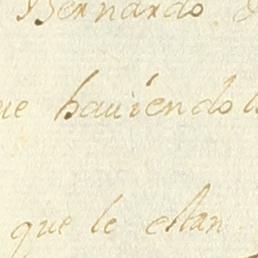 Bernardo
ue haviendo
que le estan